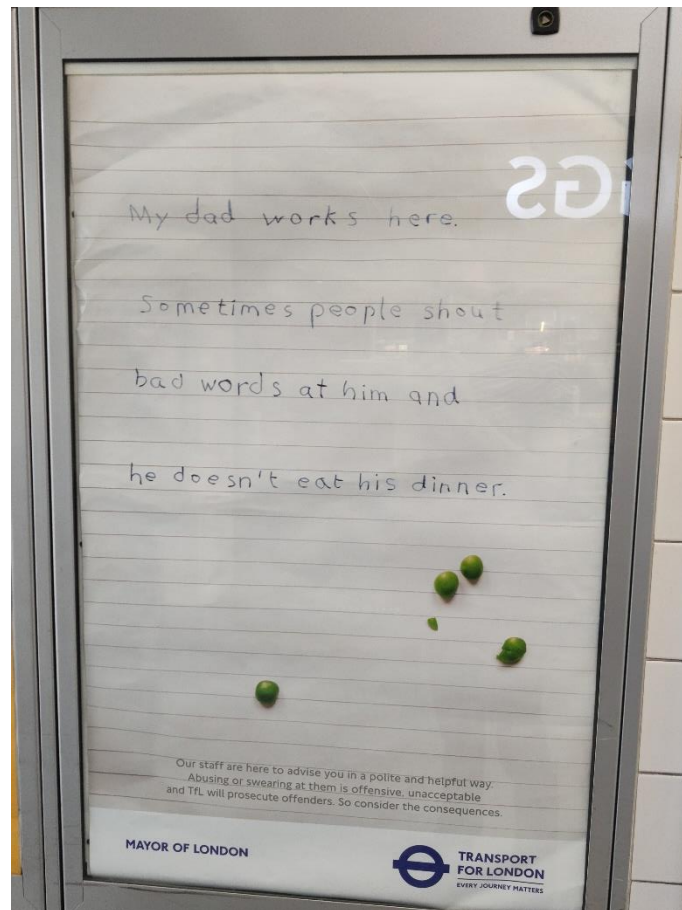 My dad works here.
Sometimes people shout
bad words at him and
he doesn't eat his dinner.
Our staff are here to advise you in a polite and helpful way.
Abusing or swearing at them is offensive, unacceptable
and TfL will prosecute offenders. So consider the consequences.
MAYOR OF LONDON
TRANSPORT
FOR LONDON
EVERY JOURNEY MATTERS